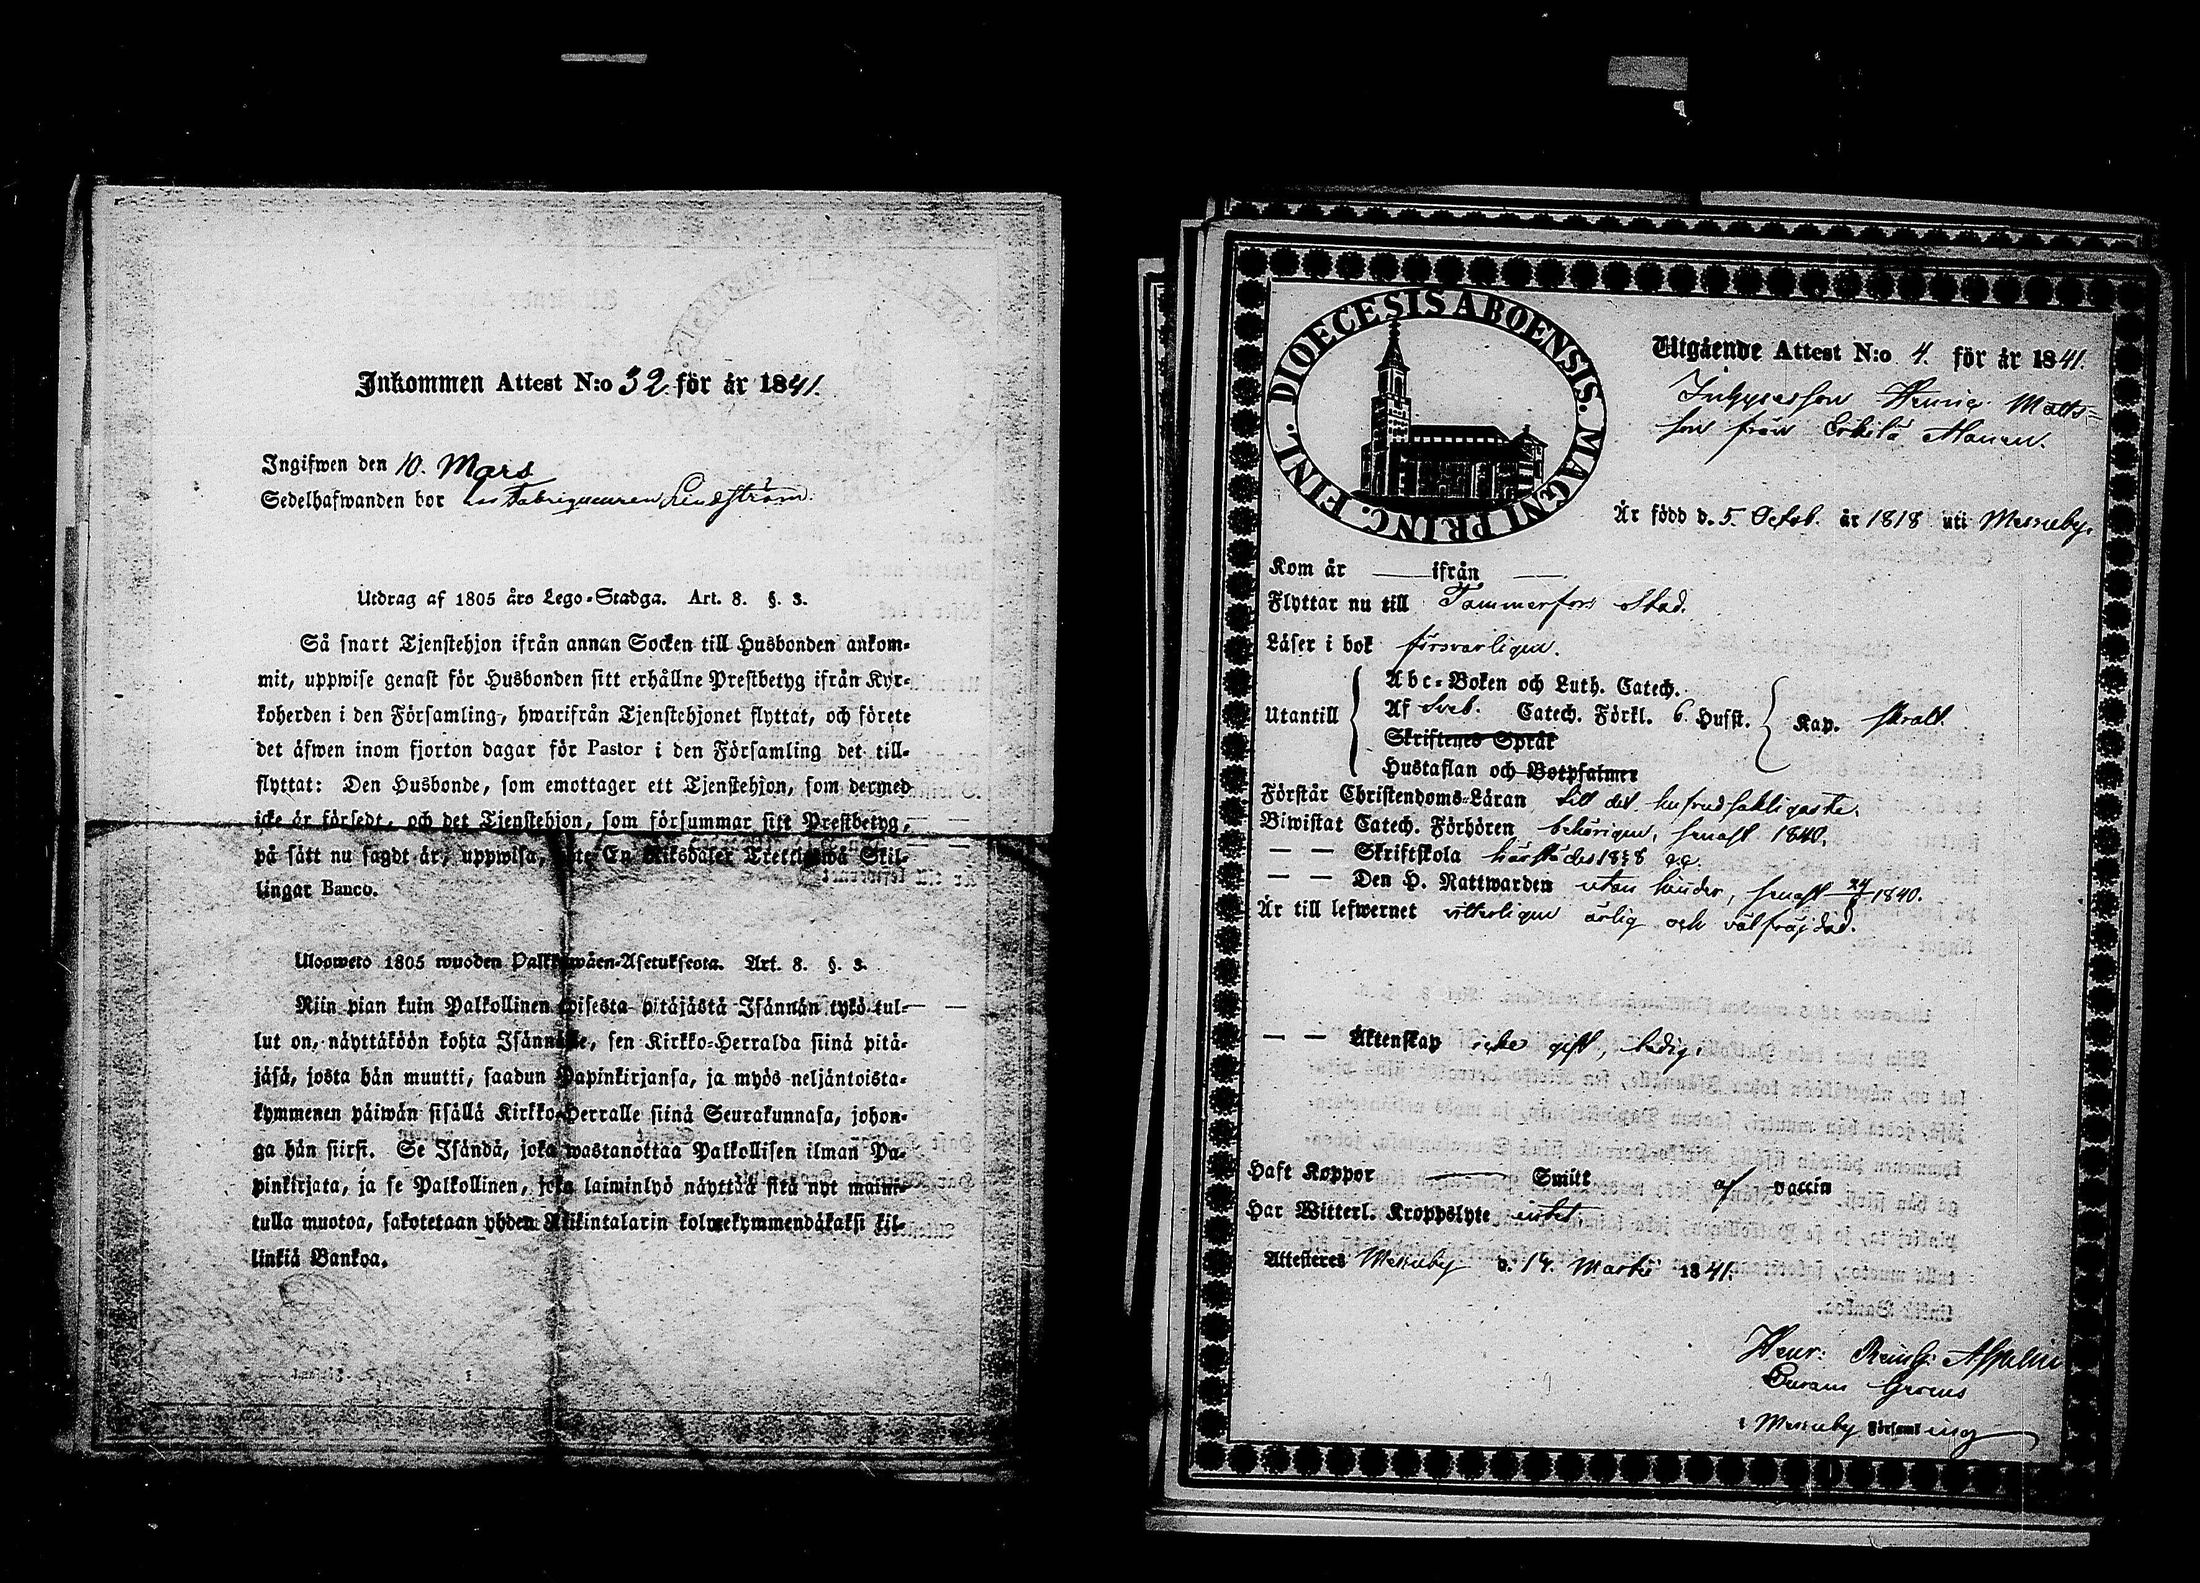 Inkommen Attest N:o 32 för år 1841.
Ingifwen den 10. Mars
Sedelhafwanden bor hos Fabriqueuren Lindström.
Utdrag af 1805 års Lego-Stadga. Art. 8. §. 3.
Så snart Tjenstehjon ifrån annan Socken till Husbonden ankom-
mit, uppwise genast för Husbonden sitt erhållne Prestbetyg ifrån Kyr-
koherden i den Församling, hwarifrån Tjenstehjonet flyttat, och förete
det äfwen inom fjorton dagar för Pastor i den Församling det till-
flyttat: Den Husbonde, som emottager ett Tjenstehjon, som dermed
icke är försedt, och det Tjenstehjon, som försummar sitt Prestbetyg,
på sätt nu sagdt är, uppwisa, böte En Riksdaler Trettiotwå Skil-
lingar Banco.
Ulosweto 1805 wuoden Palkkawäen-Asetuksesta. Art. 8. §. 3.
Niin pian kuin Palkollinen toisesta pitäjästä Isännän tykö tul-
lut on, näyttäköön kohta Isännälle, sen Kirkko-Herralda siinä pitä-
jäsä, josta hän muutti, saadun Papinkirjansa, ja myös neljäntoista-
kymmenen päiwän sisällä Kirkko-Herralle siinä Seurakunnasa, johon-
ga hän siirsi. Se Isändä, joka wastanottaa Palkollisen ilman Pa-
pinkirjata, ja se Palkollinen, joka laiminlyö näyttää sitä nyt maini-
tulla muotoa, sakotetaan yhden Riikintalarin kolmekymmendäkaksi kil-
linkiä Bankoa.
DIOECESIS ABOENSIS. MAGNI PRINC. FINL.
Utgående Attest N:o 4. för år 1841.
Inhyseson Henric Matts-
son från Erkilä Manen.
Är född d. 5. Octob. år 1818 uti Messuby.
Kom år — ifrån —
Flyttar nu till Tammerfors Stad.
Läser i bok försvarligen.
Utantill
Abc-Boken och Luth. Catech.
Af Sveb. Catech. Förkl. 6. Husst. Kap. skralt.
Skriftenes Språk
Hustaflan och Botpsalmer
Förstår Christendoms-Läran till det hufvudsakligaste.
Biwistat Catech. Förhören behörigen, senast 1840.
— — Skriftskola härstädes 1838
— — Den H. Nattwarden utan hinder, senast 1840.
Är till lefwernet vitterligen ärlig och välfräjdad.
— — Äktenskap icke gift, ledig.
Haft Koppor — Smitt af vaccin
Har Witterl. Kroppslyte intet
Attesteres Messuby d. 14. Martii 1841.
Henr: Reinh: Aspelin
Curam Gerens
i Messuby Församling